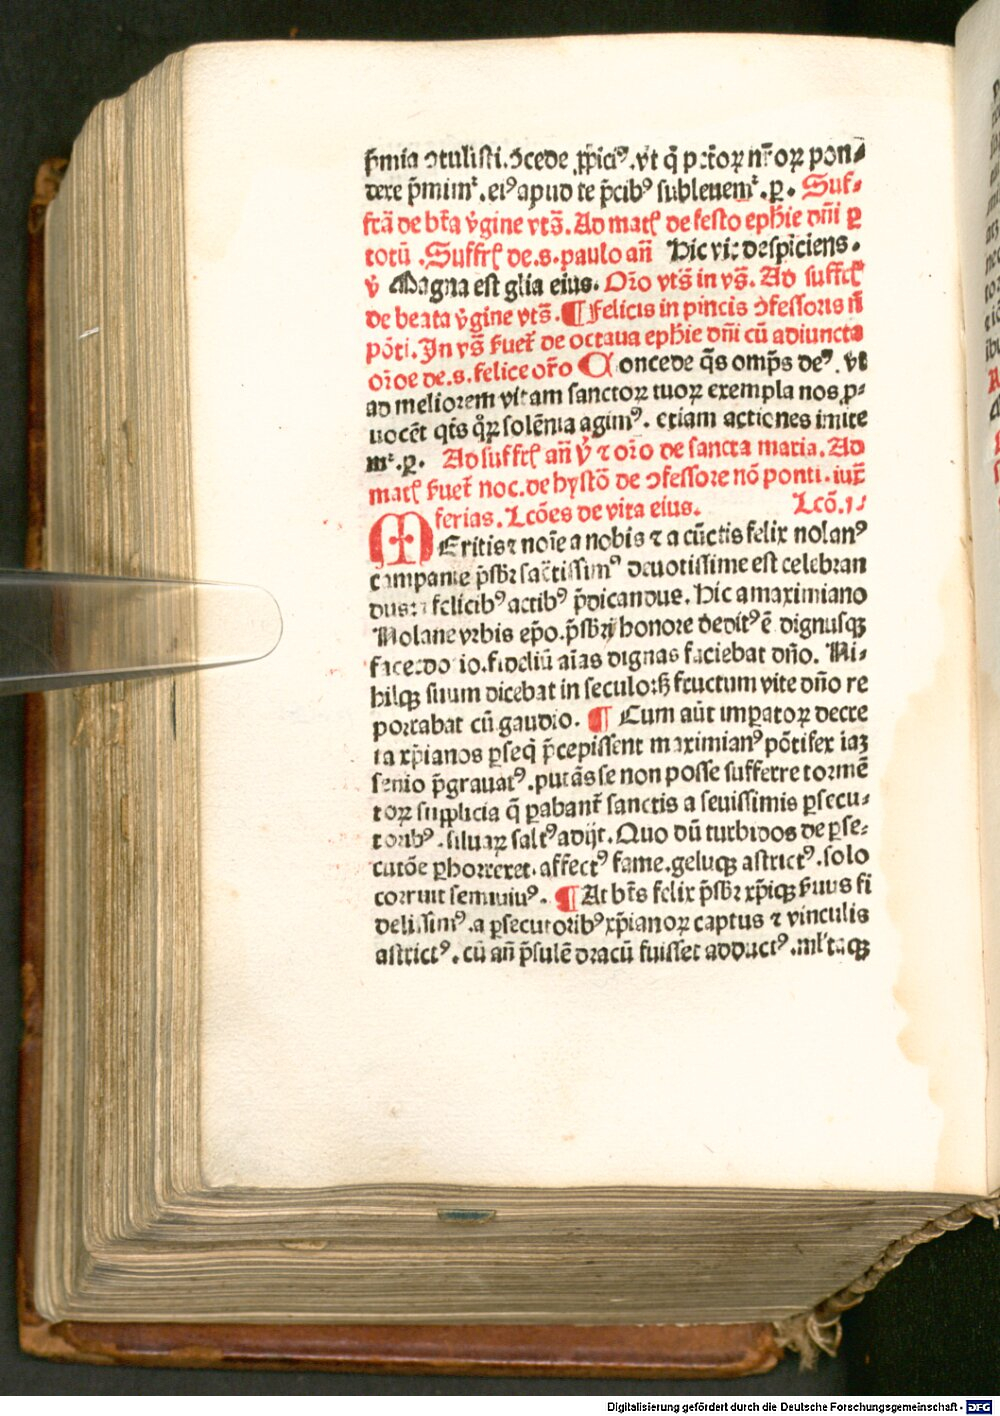 p̄mia ↄtulisti.ↄcede ꝓpici⁹.vt q̄ pctōꝝ nr̄oꝝ pon⸗
dere p̄mimʳ.ei⁹ apud te p̄cib⁹ subleuemʳ.ꝑ. Suf⸗
frā de btā v̄gine vts̄. Ad matꝭ de festo ephīe dn̄i ꝑ
totū .Suffrꝭ de.s.paulo an̄ Hic vir despiciens.
v̄ Magna est glia eius. Or̄o vts̄ in vs̄. Ad suffrꝭ
de beata v̄gine vts̄. ¶ Felicis in pincis ↄfessoris n̄
pōti. In vs̄ fuer̄ de octaua ephīe dn̄i cū adiuncta
or̄oe de.s.felice or̄o Concede q̄s omp̄s de⁹. vt
ad meliorem vitam sanctoꝝ tuoꝝ exempla nos ꝓ⸗
uocēt qts̄ qr̄ꝝ solēnia agim⁹. etiam actiones imite
mʳ.ꝑ. Ad suffrꝭ an̄ v̄ ⁊ or̄o de sancta maria. Ad
matꝭ fuer̄ noc. de hystō de ↄfessore nō ponti. iux̄
ferias. Lcōes de vita eius. Lcō.1⸗
MEritis ⁊ noīe a nobis ⁊ a cūctis felix nolan⁹
campanie p̄sbr̄ sac̄tissim⁹ deuotissime est celebran
dus: ⁊ felicib⁹ actib⁹ p̄dicandus. Hic a maximiano
Nolane vrbis ep̄o.p̄sbr̄ij honore dedit⁹ ē dignusqꝫ
sacerdotio.fideliū aīas dignas faciebat dn̄o. Ni⸗
hilqꝫ suum dicebat in seculo:sꝫ fructum vite dn̄o re
portabat cū gaudio. ¶ Cum aūt imp̱atoꝝ decre
ta xp̄ianos ꝑseq̄ p̄cepissent maximian⁹ pōtifex iaꝫ
senio p̄grauat⁹.putās se non posse sufferre tormē
toꝝ supplicia q̄ parabant̄ sanctis a seuissimis ꝑsecu⸗
torib⁹.siluaꝝ salt⁹ adijt. Quo dū turbidos de ꝑse⸗
cutōe ꝑhorreret.affect⁹ fame.geluqꝫ astrict⁹.solo
corruit semiuiu⁹. ¶ At bt̄s felix p̄sbr̄ xp̄iqꝫ seruus fi
delissim⁹.a ꝑsecutorib⁹ xp̄ianoꝝ captus ⁊ vinculis
astrict⁹.cū an̄ p̄sulē dracū fuisset adduct⁹.ml̄taqꝫ
Digitalisierung gefördert durch die Deutsche Forschungsgemeinschaft - DFG